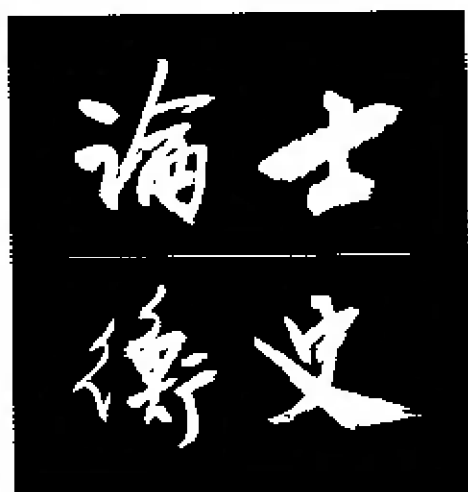 論士
衡史